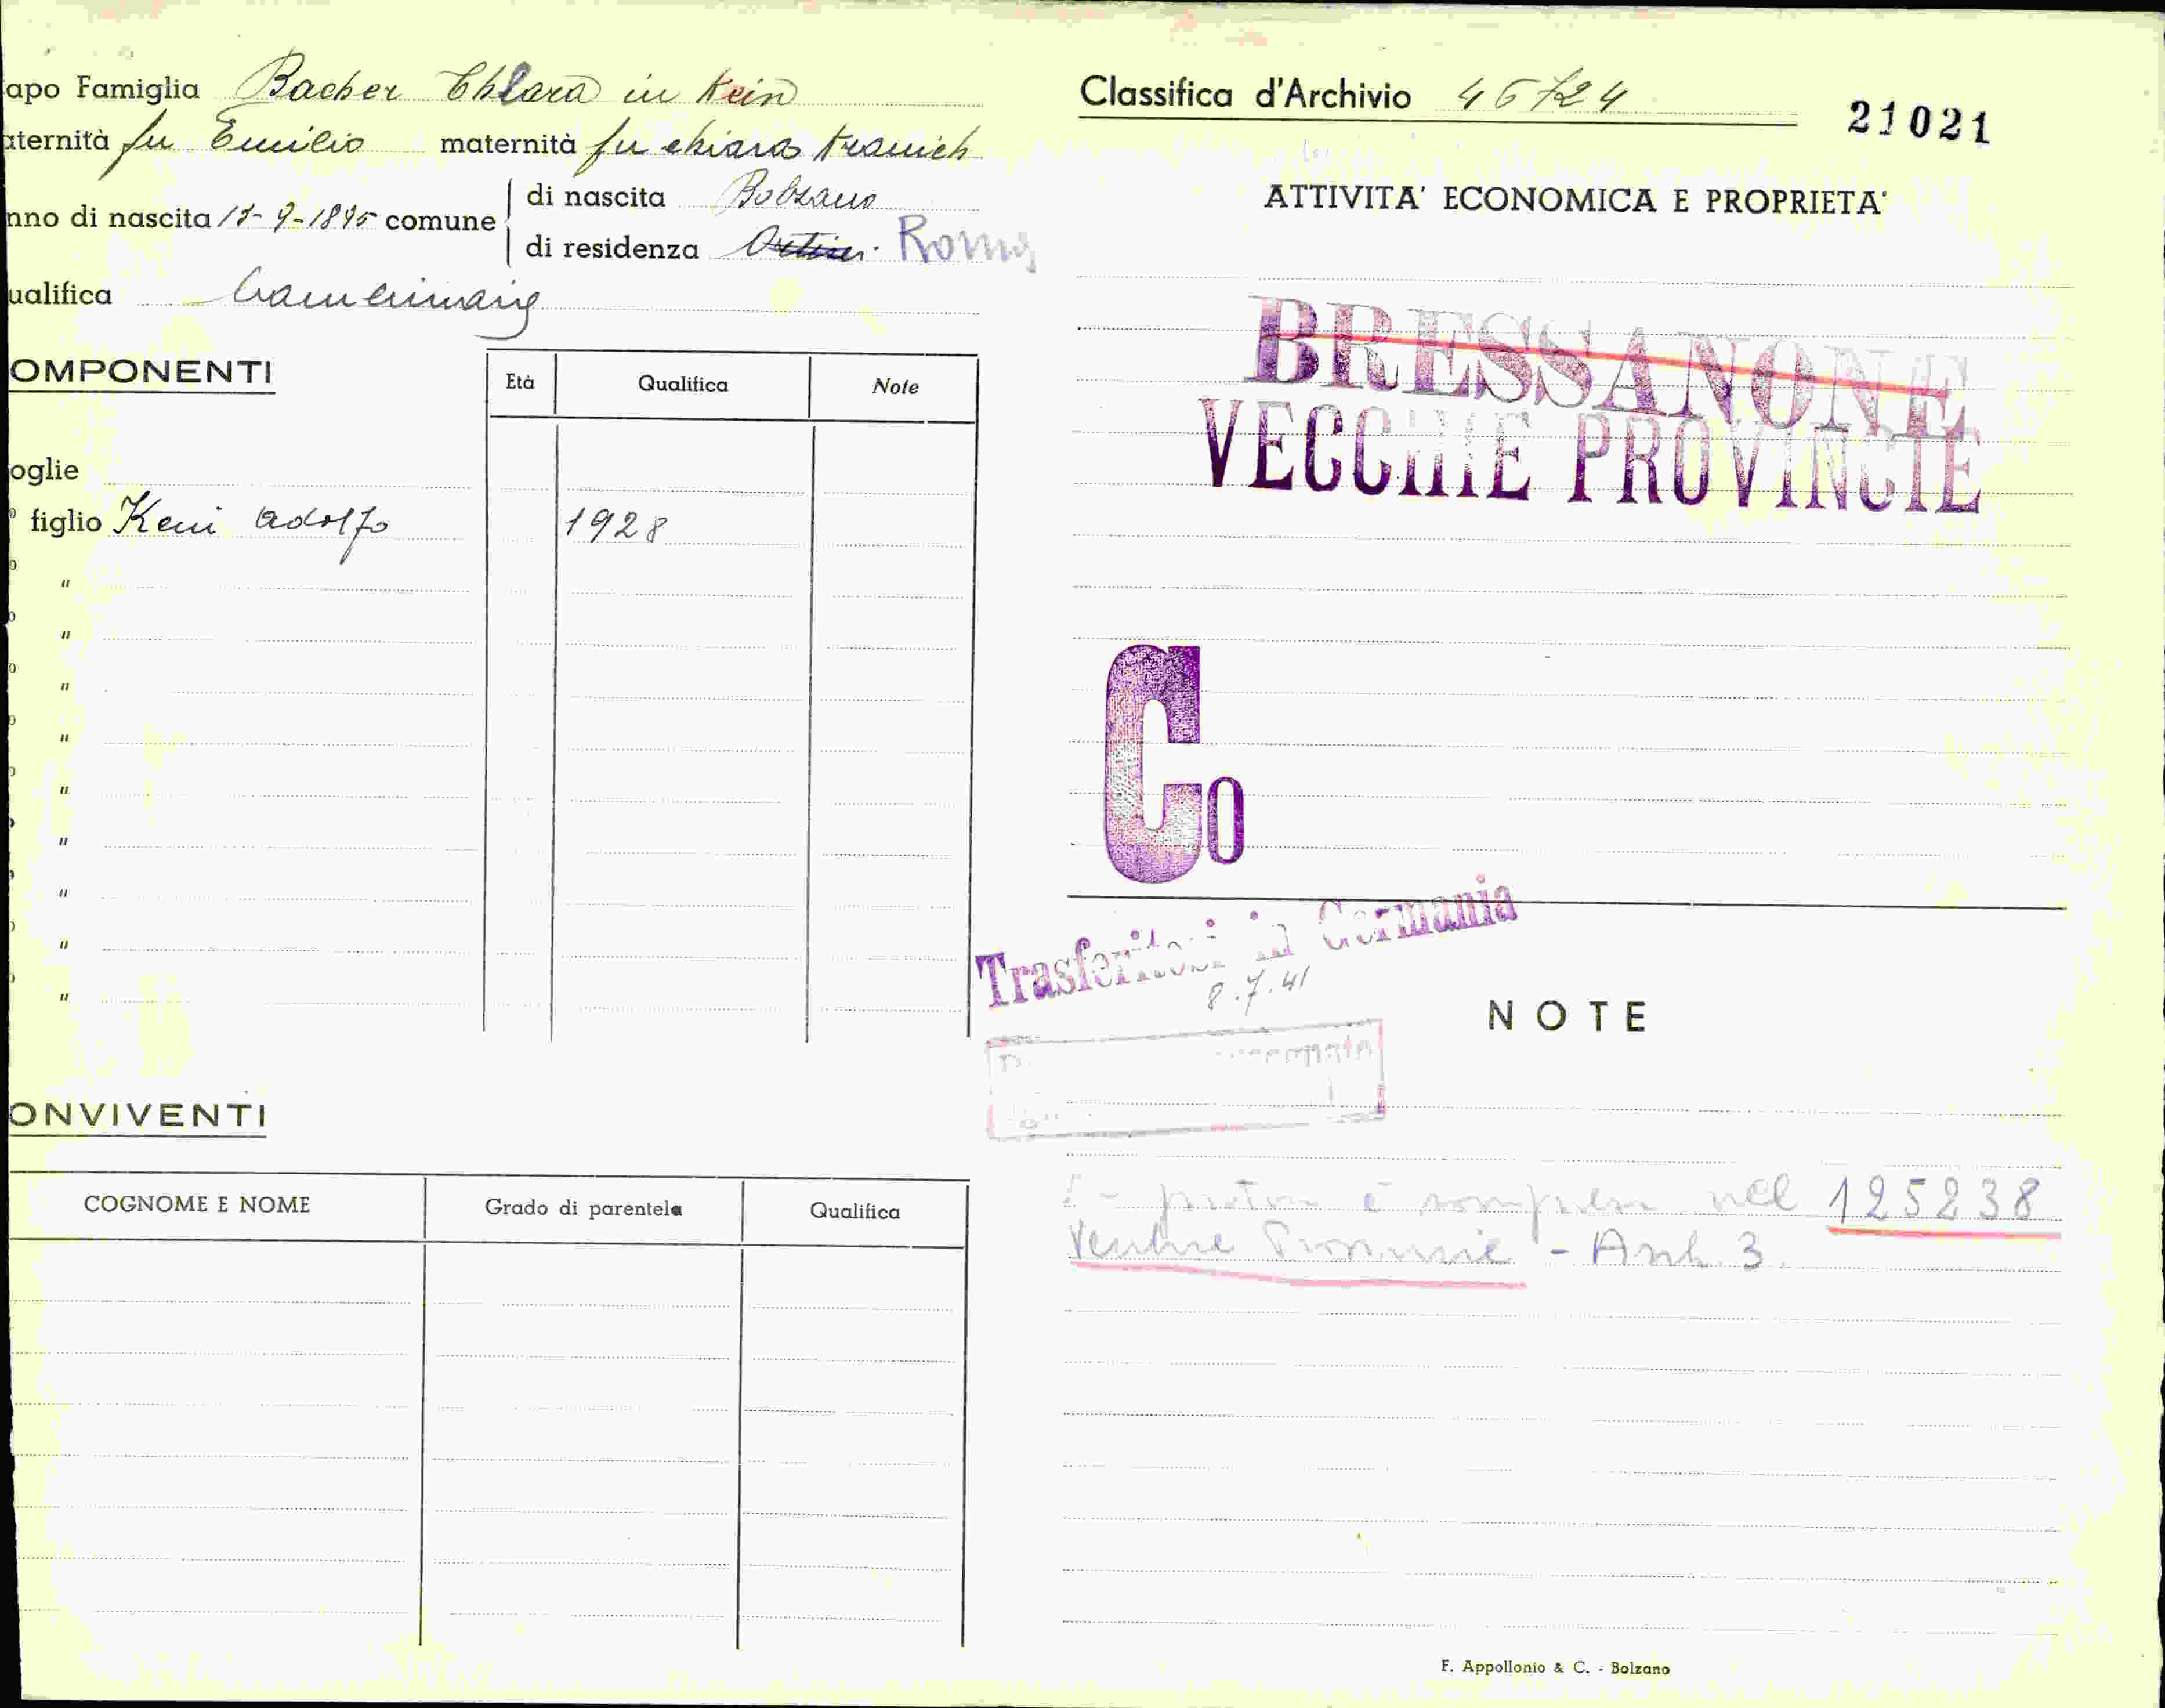 apo Famiglia Bacher Chlara in Kein
aternità fu Emilio maternità fu chiara Kranich
nno di nascita 17-9-1895 comune
di nascita Bolzano
di residenza Ortisei Roma
ualifica Cameriera
OMPONENTI
Età Qualifica Note
oglie
figlio Kein Adolfo 1928
"
"
"
"
"
"
"
"
"
ONVIVENTI
COGNOME E NOME Grado di parentela Qualifica
Classifica d'Archivio 46724
21021
ATTIVITA' ECONOMICA E PROPRIETA'
BRESSANONE
VECCHIE PROVINCIE
Co
Trasferitosi in Germania
8.7.41
NOTE
è compresa nel 125238
Vecchie Provincie - Arch. 3
F. Appollonio & C. - Bolzano